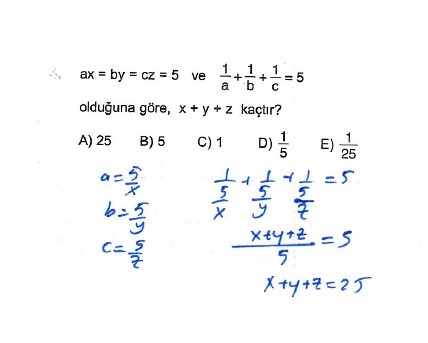 ax = by = cz = 5 ve 1/a + 1/b + 1/c = 5
olduğuna göre, x + y + z kaçtır?
A) 25 B) 5 C) 1 D) 1/5 E) 1/25
a = 5/x
b = 5/y
c = 5/z
1/(5/x) + 1/(5/y) + 1/(5/z) = 5
(x+y+z)/5 = 5
x+y+z = 25